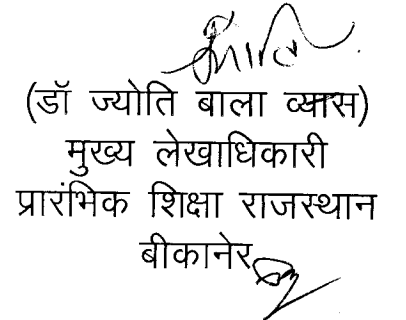 (डॉ ज्योति बाला व्यास)
मुख्य लेखाधिकारी
प्रारंभिक शिक्षा राजस्थान
बीकानेर